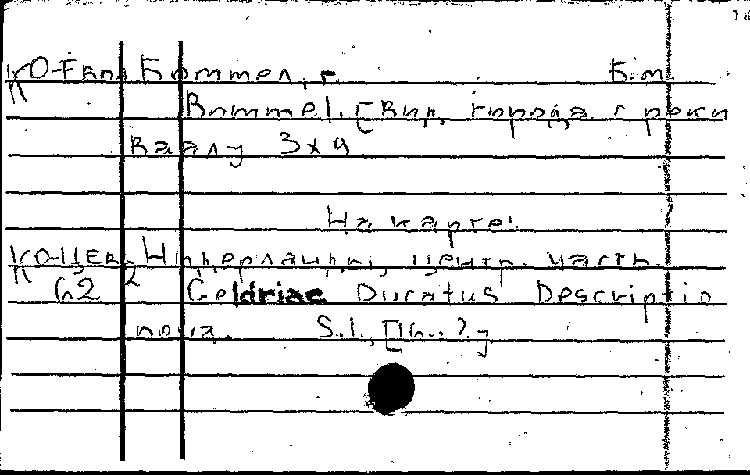 КО-Евп. Боммел, г. Б.м.
Bommel. [Вид города с реки
Ваал] 3x9
На карте:
КО-ЦЕв. Нидерланды, центр. часть.
G2 2 Geldriae Ducatus Descriptio
nova. S.l., [16..?]